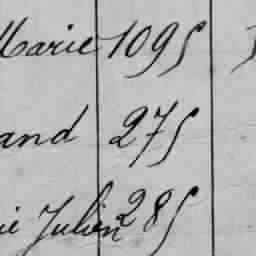 Marie 1095
and 275
ie Julien 285